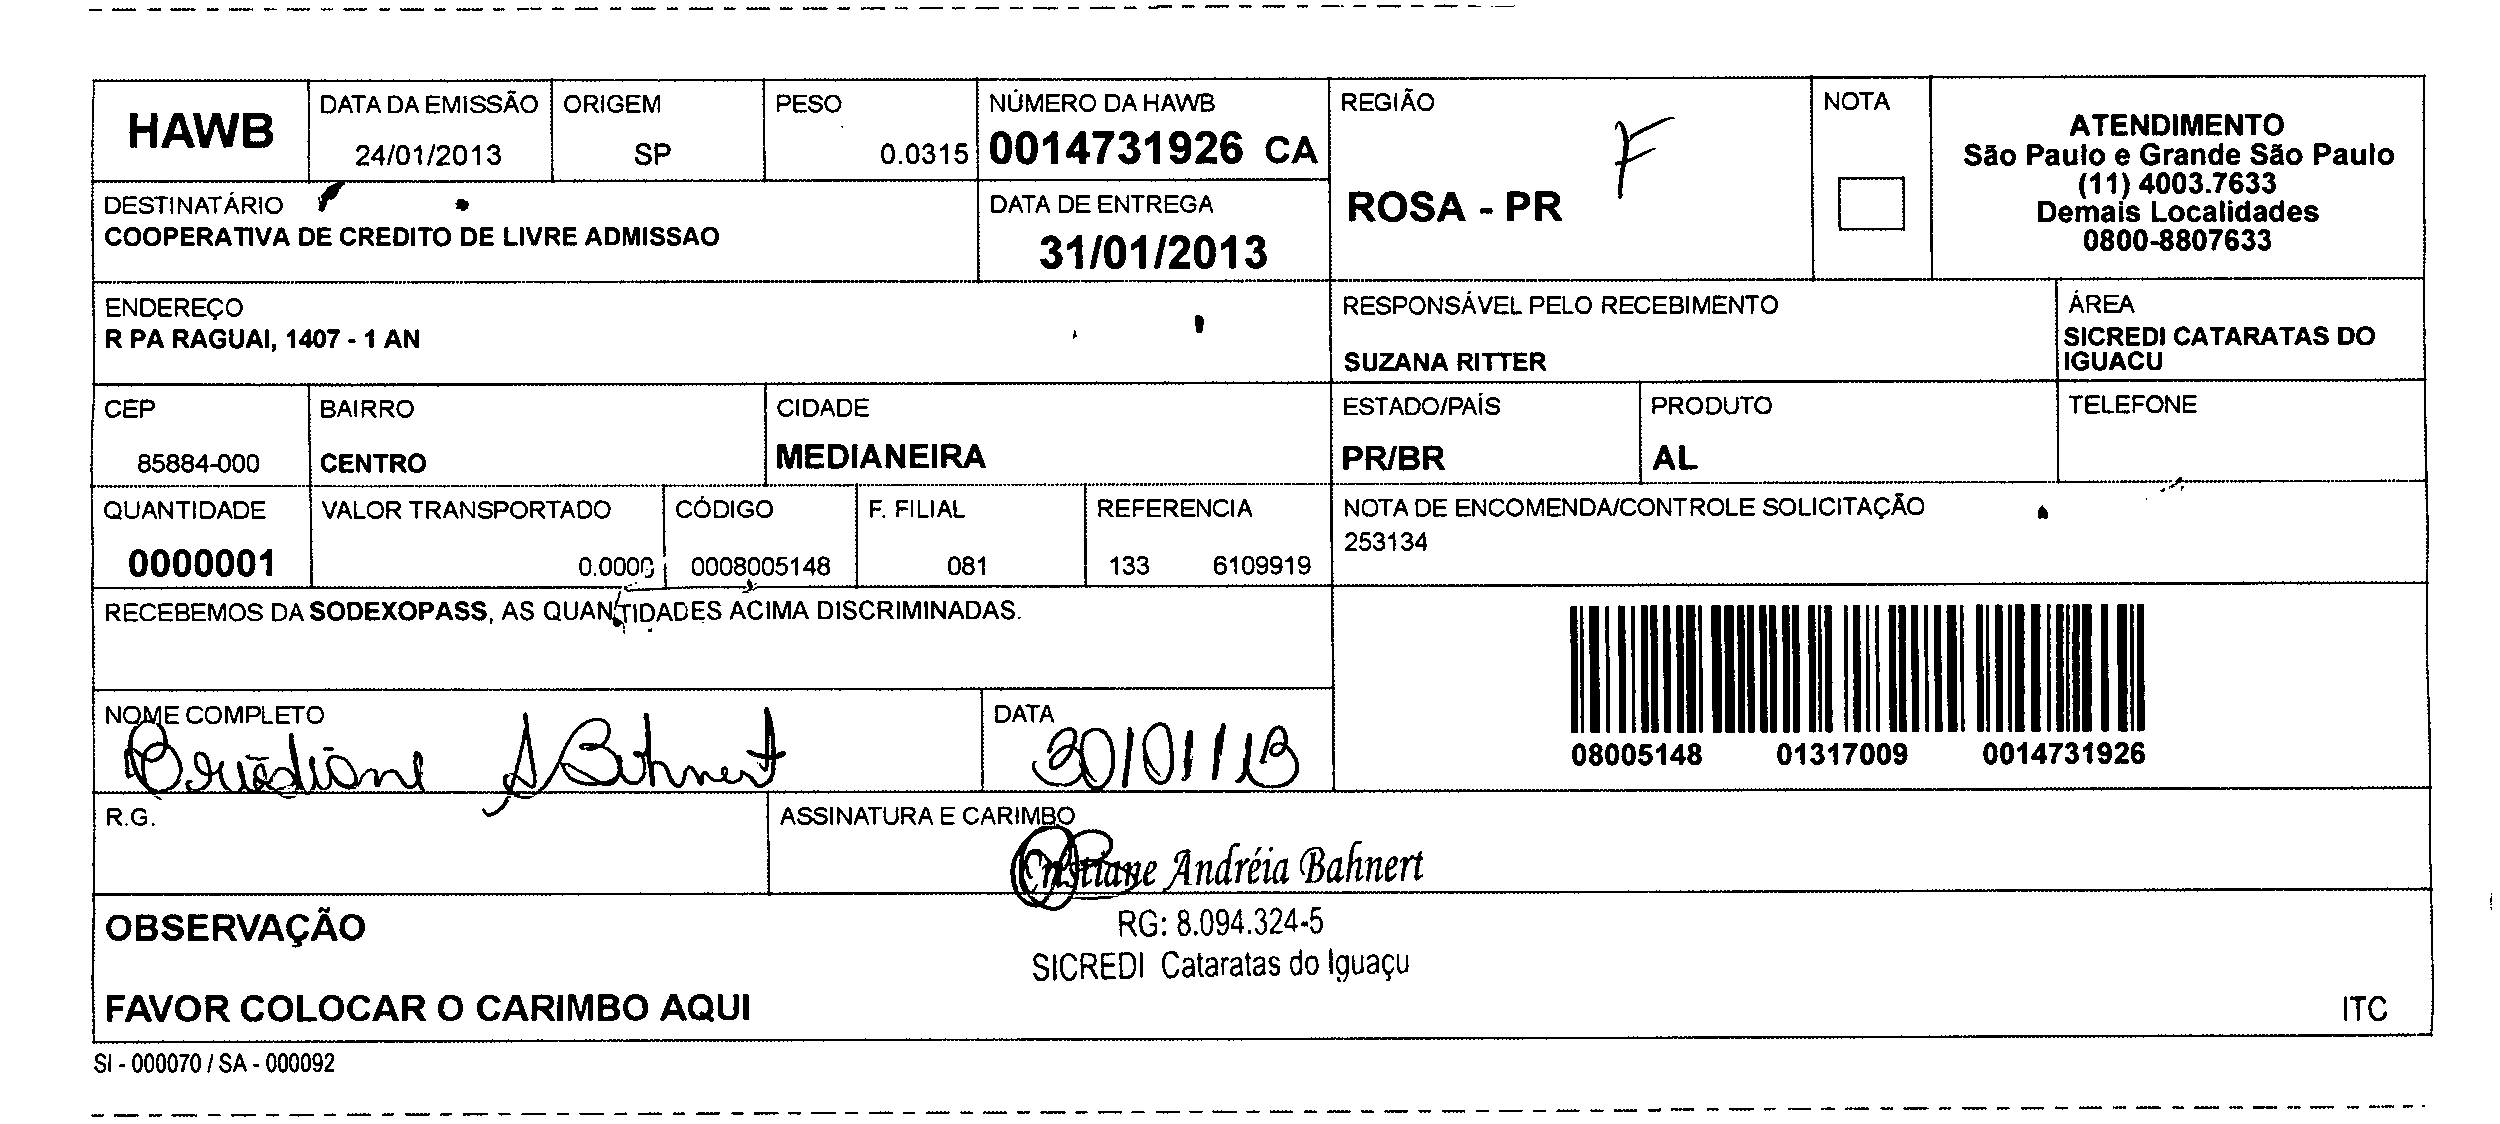 HAWB
DATA DA EMISSÃO
24/01/2013
ORIGEM
SP
PESO
0.0315
NÚMERO DA HAWB
0014731926 CA
REGIÃO
F
ROSA - PR
NOTA
ATENDIMENTO
São Paulo e Grande São Paulo
(11) 4003.7633
Demais Localidades
0800-8807633
DESTINATÁRIO
COOPERATIVA DE CREDITO DE LIVRE ADMISSAO
DATA DE ENTREGA
31/01/2013
ENDEREÇO
R PA RAGUAI, 1407 - 1 AN
RESPONSÁVEL PELO RECEBIMENTO
SUZANA RITTER
ÁREA
SICREDI CATARATAS DO
IGUACU
CEP
85884-000
BAIRRO
CENTRO
CIDADE
MEDIANEIRA
ESTADO/PAÍS
PR/BR
PRODUTO
AL
TELEFONE
QUANTIDADE
0000001
VALOR TRANSPORTADO
0.0000
CÓDIGO
0008005148
F. FILIAL
081
REFERENCIA
133 6109919
NOTA DE ENCOMENDA/CONTROLE SOLICITAÇÃO
253134
RECEBEMOS DA SODEXOPASS, AS QUANTIDADES ACIMA DISCRIMINADAS.
08005148 01317009 0014731926
NOME COMPLETO
A Bahnert
DATA
30/01/13
R.G.
ASSINATURA E CARIMBO
Cristiane Andréia Bahnert
RG: 8.094.324-5
SICREDI Cataratas do Iguaçu
OBSERVAÇÃO
FAVOR COLOCAR O CARIMBO AQUI
ITC
SI - 000070 / SA - 000092